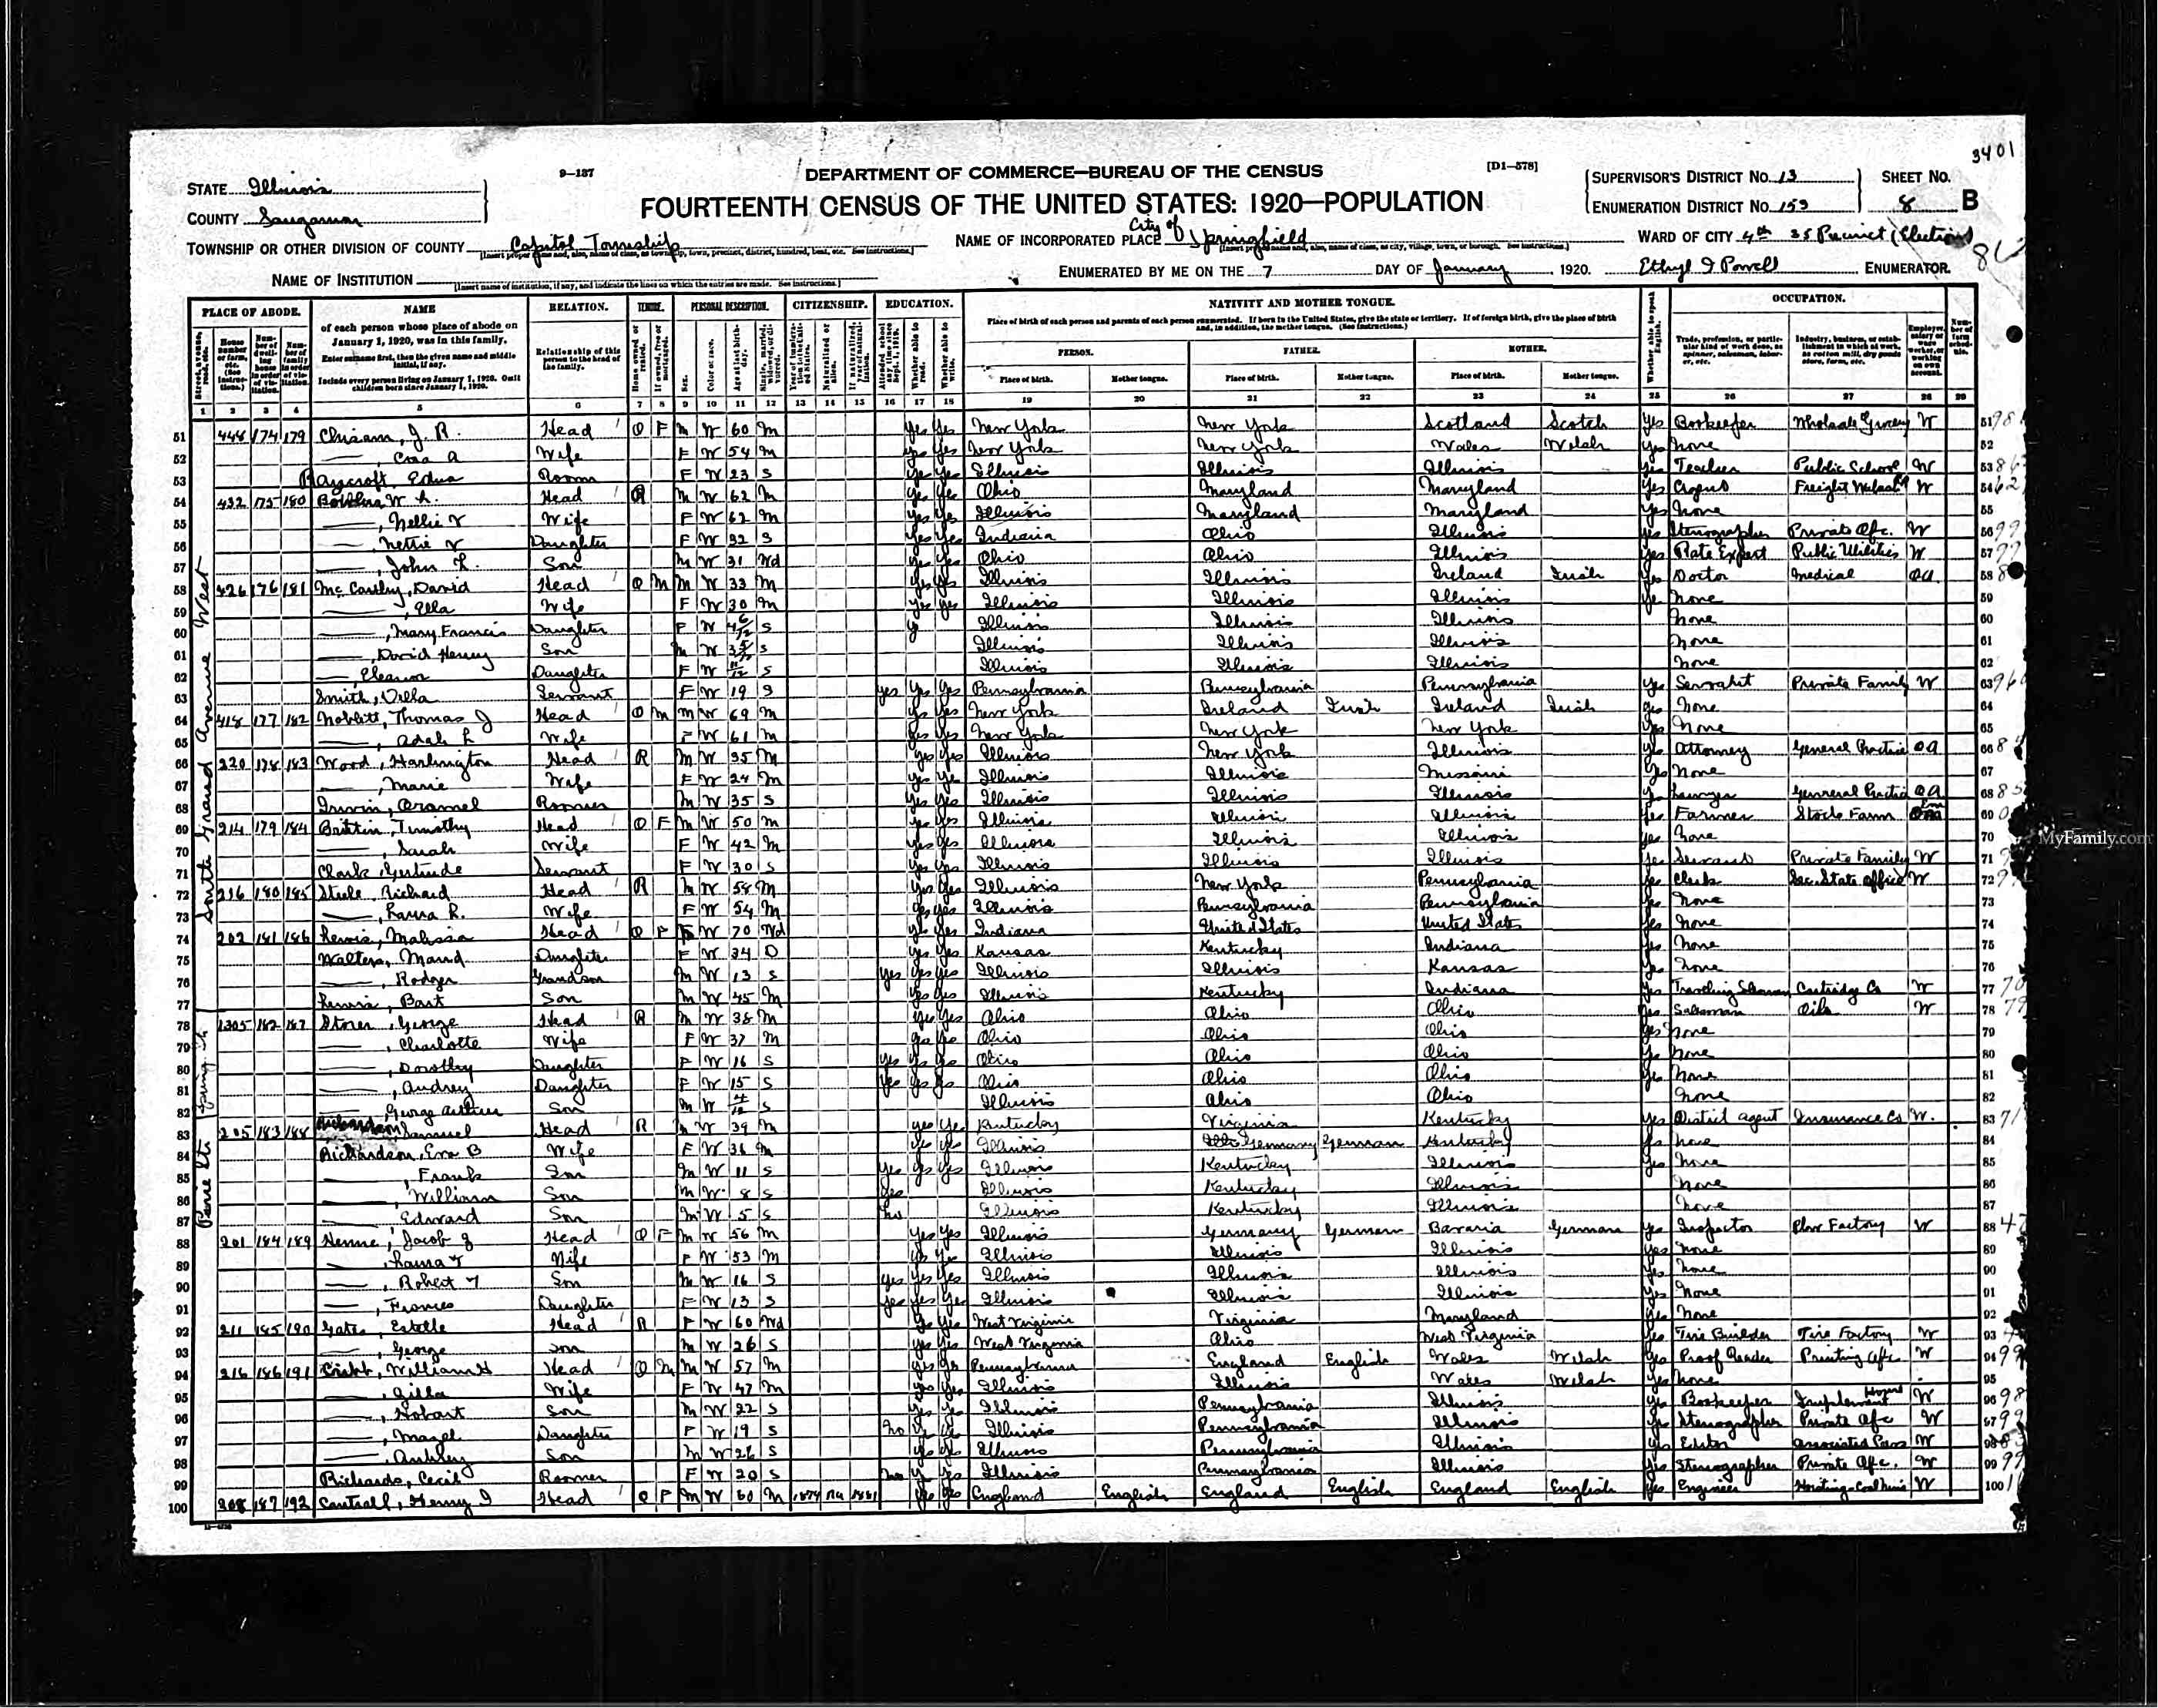 3401
STATE Illinois
COUNTY Sangamon
9—137
DEPARTMENT OF COMMERCE—BUREAU OF THE CENSUS
[D1—578]
FOURTEENTH CENSUS OF THE UNITED STATES: 1920—POPULATION
SUPERVISOR'S DISTRICT No. 13
ENUMERATION DISTRICT No. 153
SHEET No.
8 B
TOWNSHIP OR OTHER DIVISION OF COUNTY Capitol Township
NAME OF INCORPORATED PLACE City of Springfield
WARD OF CITY 4th 35 Precinct (Election)
NAME OF INSTITUTION
[Insert name of institution, if any, and indicate the lines on which the entries are made. See instructions.]
ENUMERATED BY ME ON THE 7 DAY OF January, 1920. Ethyl I Powell ENUMERATOR.
PLACE OF ABODE. NAME RELATION. TENURE. PERSONAL DESCRIPTION. CITIZENSHIP. EDUCATION. NATIVITY AND MOTHER TONGUE. OCCUPATION.
of each person whose place of abode on January 1, 1920, was in this family.
Enter surname first, then the given name and middle initial, if any.
Include every person living on January 1, 1920. Omit children born since January 1, 1920.
Relationship of this person to the head of the family.
Place of birth of each person and parents of each person enumerated. If born in the United States, give the state or territory. If of foreign birth, give the place of birth and, in addition, the mother tongue. (See instructions.)
PERSON. FATHER. MOTHER.
Place of birth. Mother tongue. Place of birth. Mother tongue. Place of birth. Mother tongue.
1 2 3 4 5 6 7 8 9 10 11 12 13 14 15 16 17 18 19 20 21 22 23 24 25 26 27 28 29
South Grand Avenue West
51 444 174 179 Chisam, J. R. Head O F M W 60 M Yes Yes New York New York Scotland Scotch Yes Bookeeper Wholsale Grocery W 51
52 Cora A Wife F W 54 M Yes Yes New York New York Wales Welsh Yes None 52
53 Raycroft, Edna Room F W 23 S Yes Yes Illinois Illinois Illinois Yes Teacher Public School W 53
54 432 175 180 Head R M W 62 M Yes Yes Ohio Maryland Maryland Yes W 54
55 Nellie V Wife F W 62 M Yes Yes Illinois Maryland Maryland Yes None 55
56 Nettie V Daughter F W 32 S Yes Yes Indiana Ohio Illinois Yes Stenographer Private Ofc. W 56
57 John L. Son M W 31 Wd Yes Yes Ohio Ohio Illinois Yes Rate Expert Public Utilities W 57
58 426 176 181 McCarthy, David Head O M M W 33 M Yes Yes Illinois Illinois Ireland Irish Yes Doctor Medical OA 58
59 Ella Wife F W 30 M Yes Yes Illinois Illinois Illinois Yes None 59
60 Mary Francis Daughter F W 4 6/12 S Illinois Illinois Illinois None 60
61 David Henry Son M W S Illinois Illinois Illinois None 61
62 Eleanor Daughter F W 11/12 S Illinois Illinois Illinois None 62
63 Smith, Villa Servant F W 19 S Yes Yes Yes Pennsylvania Pennsylvania Pennsylvania Yes Servant Private Family W 63
64 418 177 182 Noblitt, Thomas J Head O M M W 69 M Yes Yes New York Ireland Irish Ireland Irish Yes None 64
65 Adah L Wife F W 61 M Yes Yes New York New York New York Yes None 65
66 220 178 183 Wood, Harlington Head R M W 35 M Yes Yes Illinois New York Illinois Yes Attorney General Practice OA 66
67 Marie Wife F W 24 M Yes Yes Illinois Illinois Missouri Yes None 67
68 Irwin, Oramel Roomer M W 35 S Yes Yes Illinois Illinois Illinois Yes Lawyer General Practice OA 68
69 214 179 184 Brittin, Timothy Head O F M W 50 M Yes Yes Illinois Illinois Illinois Yes Farmer Stock Farm Em 69
70 Sarah Wife F W 42 M Yes Yes Illinois Illinois Illinois Yes None 70
71 Clark, Gertrude Servant F W 30 S Yes Yes Illinois Illinois Illinois Yes Servant Private Family W 71
72 216 180 185 Steele, Richard Head R M W 58 M Yes Yes Illinois New York Pennsylvania Yes Clerk Sec. State Office W 72
73 Laura R. Wife F W 54 M Yes Yes Illinois Pennsylvania Pennsylvania Yes None 73
74 202 181 186 Lewis, Malissa Head O F F W 70 Wd Yes Yes Indiana United States United States Yes None 74
75 Walters, Maud Daughter F W 34 D Yes Yes Kansas Kentucky Indiana Yes None 75
76 Rodger Grandson M W 13 S Yes Yes Yes Illinois Illinois Kansas Yes None 76
77 Lewis, Bart Son M W 45 M Yes Yes Illinois Kentucky Indiana Yes Traveling Salesman Cartridge Co W 77
78 1305 182 187 Storer, George Head R M W 38 M Yes Yes Ohio Ohio Ohio Yes Salesman Oils W 78
79 Charlotte Wife F W 37 M Yes Yes Ohio Ohio Ohio Yes None 79
80 Dorothy Daughter F W 16 S Yes Yes Yes Ohio Ohio Ohio Yes None 80
81 Audrey Daughter F W 15 S Yes Yes Yes Ohio Ohio Ohio Yes None 81
82 George Arthur Son M W 4/12 S Illinois Ohio Ohio None 82
83 205 183 188 Richardson, Samuel Head R M W 39 M Yes Yes Kentucky Virginia Kentucky Yes District agent Insurance Co W. 83
84 Richardson, Eva B Wife F W 36 M Yes Yes Illinois Germany German Kentucky Yes None 84
85 Frank Son M W 11 S Yes Yes Yes Illinois Kentucky Illinois Yes None 85
86 William Son M W 8 S Yes Illinois Kentucky Illinois None 86
87 Edward Son M W 5 S No Illinois Kentucky Illinois None 87
88 201 184 189 Henne, Jacob J Head O F M W 56 M Yes Yes Illinois Germany German Bavaria German Yes Inspector Plow Factory W 88
89 Laura Wife F W 53 M Yes Yes Illinois Illinois Illinois Yes None 89
90 Robert Son M W 16 S Yes Yes Yes Illinois Illinois Illinois Yes None 90
91 Frances Daughter F W 13 S Yes Yes Yes Illinois Illinois Illinois Yes None 91
92 211 185 190 Gates, Estelle Head R F W 60 Wd Yes Yes West Virginia Virginia Maryland Yes None 92
93 George Son M W 26 S Yes Yes West Virginia Ohio West Virginia Yes Tire Builder Tire Factory W 93
94 216 186 191 Cribb, William H Head O M M W 57 M Yes Yes Pennsylvania England English Wales Welsh Yes Proof Reader Printing Ofc W 94
95 Wife F W 47 M Yes Yes Illinois Illinois Wales Welsh Yes None 95
96 Hobart Son M W 22 S Yes Yes Illinois Pennsylvania Illinois Yes Bookeeper Implement W 96
97 Hazel Daughter F W 19 S No Yes Yes Illinois Pennsylvania Illinois Yes Stenographer Private Ofc W 97
98 Son M W 26 S Yes Yes Illinois Pennsylvania Illinois Yes Editor Associated Press W 98
99 Richards, Cecil Roomer F W 20 S Yes Illinois Pennsylvania Illinois Yes Stenographer Private Ofc. W 99
100 208 187 192 Cantrall, Henry I Head O F M W 60 M 1874 Na 1881 Yes Yes England English England English England English Yes Engineer W 100
MyFamily.com